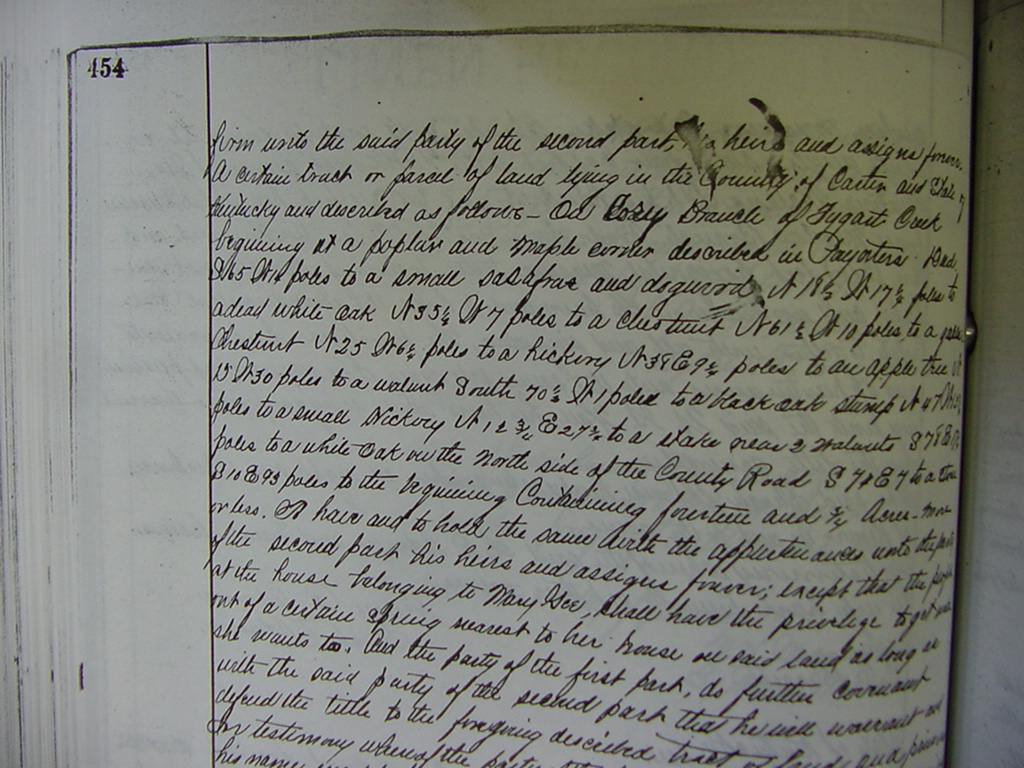 454
firm unto the said party of the second part, heirs and assigns forever.
A certain tract or parcel of land lying in the County of Carter and State of
Kentucky and described as follows - On Cosey Branch of Tygart Creek
beginning at a poplar and Maple corner described in Deed
S 65 W 14 poles to a small sasafras and dogwood N 18½ W 17½ poles to
a dead white oak N 35½ W 7 poles to a chestnut N 61½ W 10 poles, to a
Chestnut N 25 W 6½ poles to a hickory N 38 E 9½ poles to an apple tree
15 W 30 poles to a walnut South 70½ W 1 poles to a black oak stump N 47
poles to a small Hickory N 12¾ E 27½ to a stake near 2 walnuts S 78 E
poles to a white Oak on the North side of the County Road S 78 E 7 to a
S 10 E 93 poles to the beginning Containing fourteen and ½ Acres - more
or less. To have and to hold the same with the appurtenances unto the party
of the second part his heirs and assigns forever; except that the
at the house belonging to Mary Gee, shall have the privilege to get
out of a certain spring nearest to her house on said land as long as
she wants too. And the party of the first part, do further covenant
with the said party of the second part that he will warrant and
defend the title to the foregoing described tract of land, and
In testimony whereof the party
his name